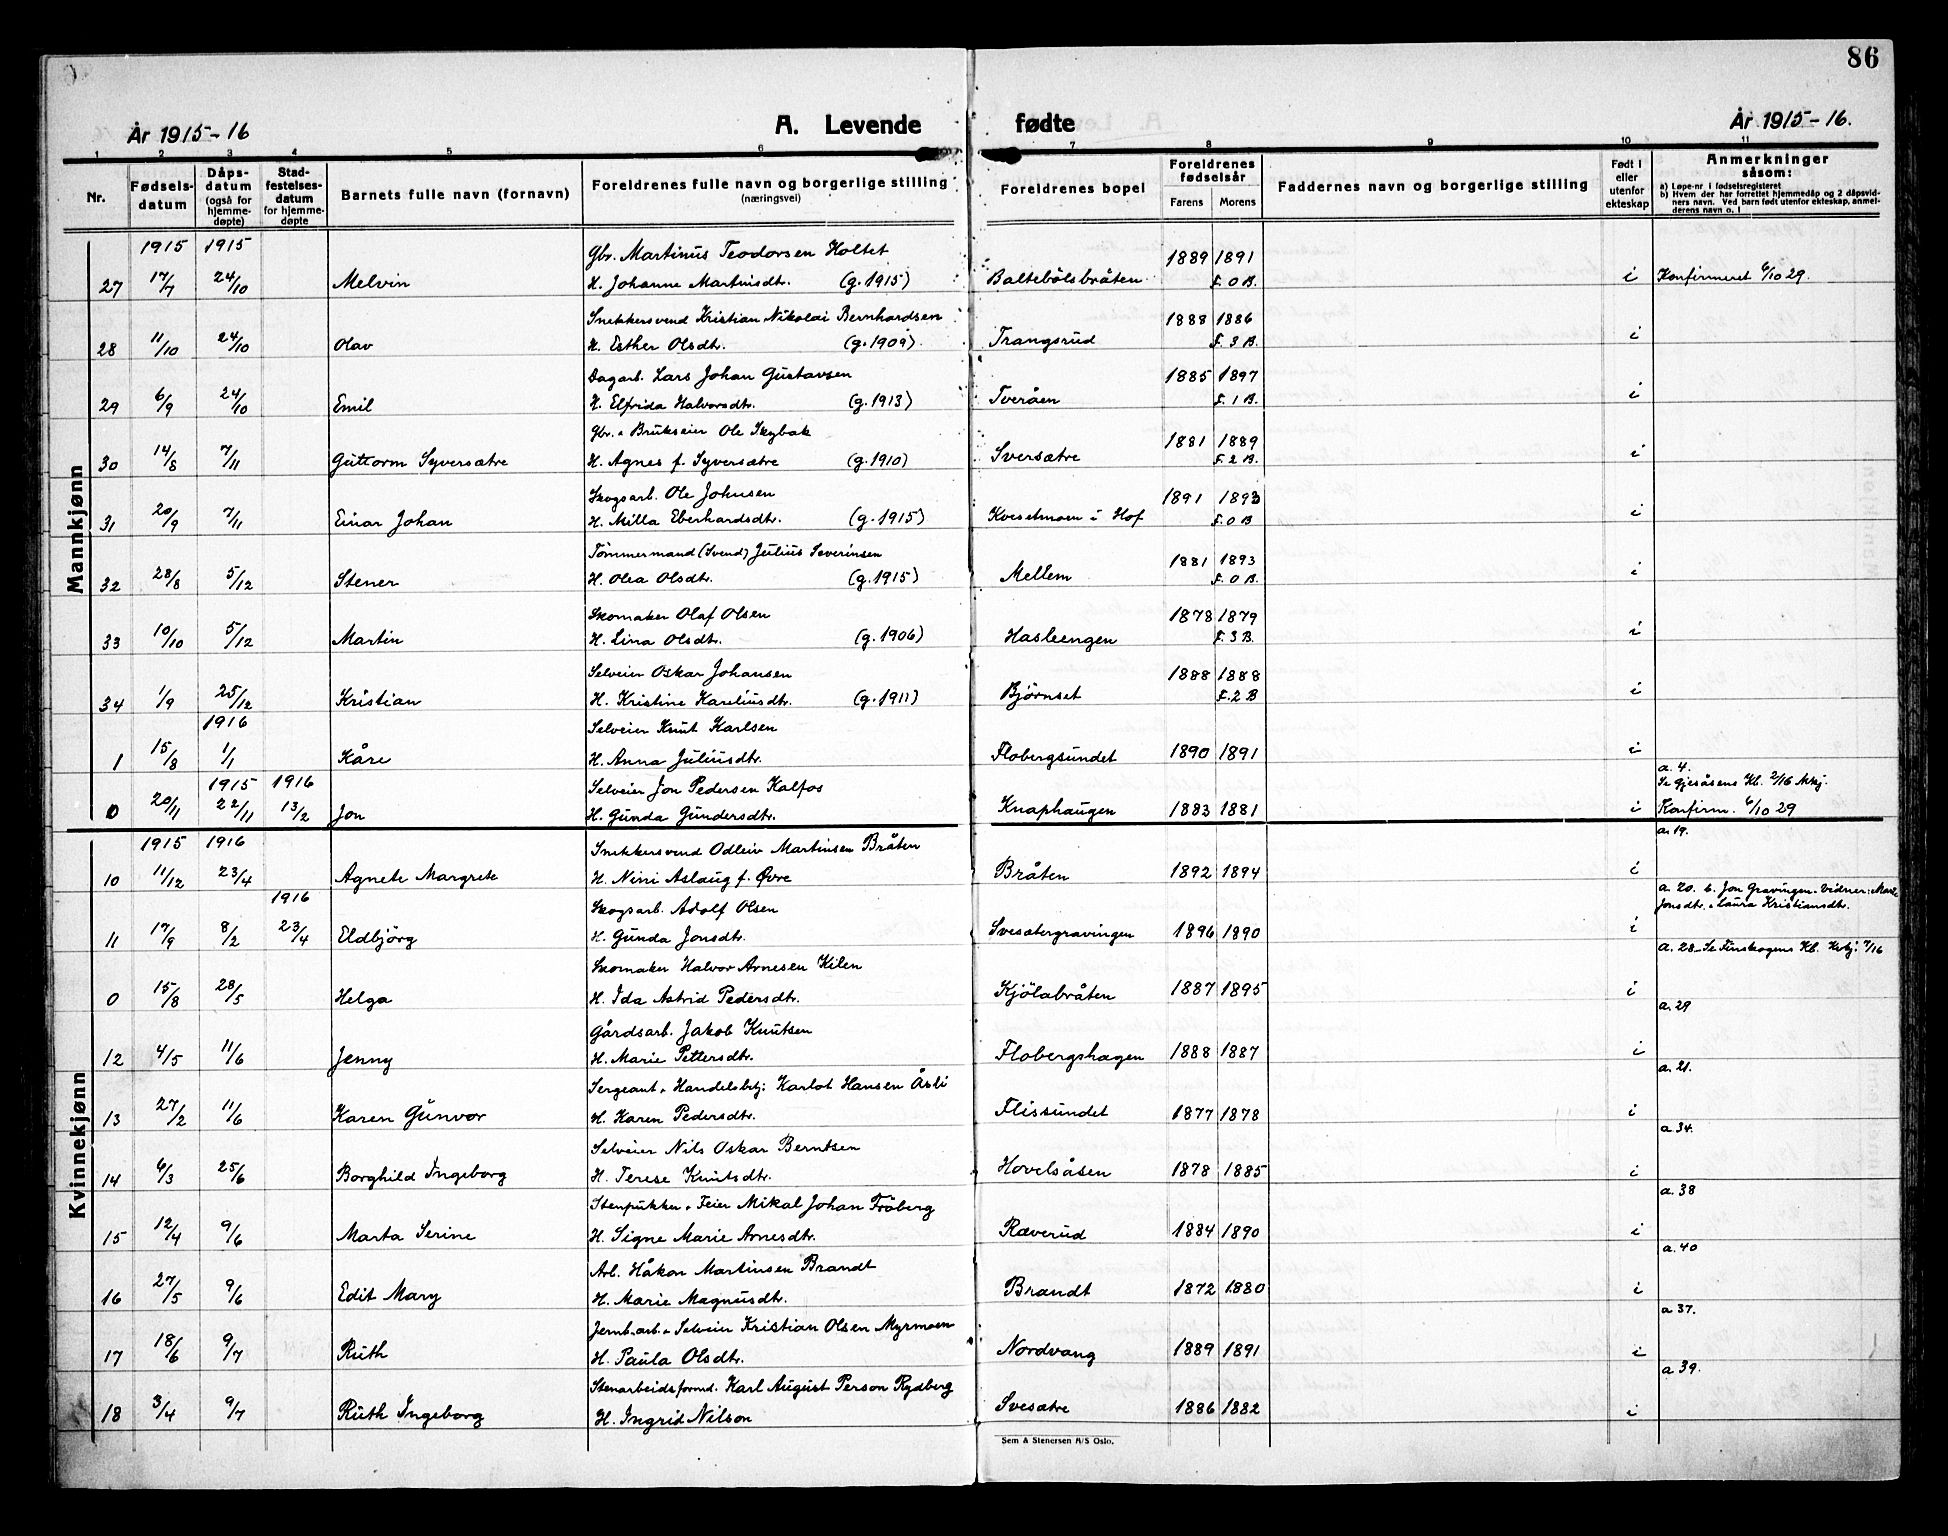 86
År 1915-16
A. Levende fødte
År 1915-16.
1 2 3 4 5 6 7 8 9 10 11
Nr. | Fødselsdatum | Dåpsdatum (også for hjemmedøpte) | Stadfestelsesdatum for hjemmedøpte | Barnets fulle navn (fornavn) | Foreldrenes fulle navn og borgerlige stilling (næringsvei) | Foreldrenes bopel | Foreldrenes fødselsår Farens Morens | Faddernes navn og borgerlige stilling | Født i eller utenfor ekteskap | Anmerkninger såsom: a) Løpe-nr. i fødselsregisteret b) Hvem der har forrettet hjemmedåp og 2 dåpsvidners navn. Ved barn født utenfor ekteskap, anmelderens navn o. l
Mannkjønn
1915 1915 Gbr. Martinus Teodorsen Holtet 1889 1891
27 17/7 24/10 Melvin H. Johanne Martinsdt. (g. 1915) Baltebölsbråten F. 0 B. i Konfirmeret 6/10 29.
Snekkersvend Kristian Nikolai Bernhardsen 1888 1886
28 11/10 24/10 Olav H. Esther Olsdtr. (g. 1909) Trangsrud F. 3 B. i
Dagarb. Lars Johan Gustavsen 1885 1897
29 6/9 24/10 Emil H. Elfrida Halvorsdtr. (g. 1913) Tveråen F. 1 B. i
Gbr. & Brukseier Ole Skybak 1881 1889
30 14/8 7/11 Guttorm Syversætre H. Agnes f. Syversætre (g. 1910) Sversætre F. 2 B. i
Skogsarb. Ole Johnsen 1891 1893
31 20/9 7/11 Einar Johan H. Milla Eberhardsdtr. (g. 1915) Kvesetmoen i Hof F. 0 B i
Tömmermand (Svend) Julius Severinsen 1881 1893
32 28/8 5/12 Stener H. Olea Olsdtr. (g. 1915) Mellem F. 0 B. i
Skomaker Olaf Olsen 1878 1879
33 10/10 5/12 Martin H. Lina Olsdtr. (g. 1906) Hasleengen F. 3 B. i
Selveier Oskar Johansen 1888 1888
34 1/9 25/12 Kristian H. Kristine Kareliusdtr. (g. 1911) Bjørnset F. 2 B i
1916 Selveier Knut Karlsen
1 15/8 1/1 Kåre H. Anna Juliusdtr. Flobergsundet 1890 1891 i
1915 1916 Selveier Jon Pedersen Kalfos a. 4. Se Gjesåsens Kl. 2/16 Mkj.
0 20/11 22/11 13/2 Jon H. Gunda Gundersdtr. Knaphaugen 1883 1881 i Konfirm. 6/10 29
Kvinnekjønn
1915 1916 Snekkersvend Odleiv Martinsen Bråten a. 19.
10 11/12 23/4 Agnete Margrete H. Nini Aslaug f. Øvre Bråten 1892 1894 i
1916 Skogsarb. Adolf Olsen a. 20. b. Jon Gravingen. Vidner: Marte Jonsdtr. & Laura Kristiansdtr.
11 17/9 8/2 23/4 Eldbjörg H. Gunda Jonsdtr. Svesætergravingen 1896 1890 i
Skomaker Halvor Arnesen Kilen a. 28 - Se Finskogens Kl. Kvkj. 7/16
0 15/8 28/5 Helga H. Ida Astrid Pedersdtr. Kjölabråten 1887 1895 i
Gårdsarb. Jakob Knutsen a. 29
12 4/5 11/6 Jenny H. Marie Pettersdtr. Flobergshagen 1888 1887 i
Sergeant & Handelsbtj: Karlot Hansen Åsli a. 21.
13 27/2 11/6 Karen Gunvor H. Karen Pedersdtr. Flissundet 1877 1878 i
Selveier Nils Oskar Berntsen a. 34.
14 6/3 25/6 Borghild Ingeborg H. Terese Knutsdtr. Hovelsåsen 1878 1885 i
Stenpukker & Feier Mikal Johan Fröberg a. 38
15 12/4 9/6 Marta Serine H. Signe Marie Arnesdtr. Ræverud 1884 1890 i
Arb. Håkon Martinsen Brandt a. 40
16 27/5 9/6 Edit Mary H. Marie Magnusdtr. Brandt 1872 1880 i
Jernb.arb. & Selveier Kristian Olsen Myrmoen a 37.
17 18/6 9/7 Ruth H. Paula Olsdtr. Nordvang 1889 1891 i
Stenarbeidsformd. Karl August Person Rydberg a 39.
18 3/4 9/7 Ruth Ingeborg H. Ingrid Nilson Svesætre 1886 1882 i
Sem & Stenersen A/S Oslo.